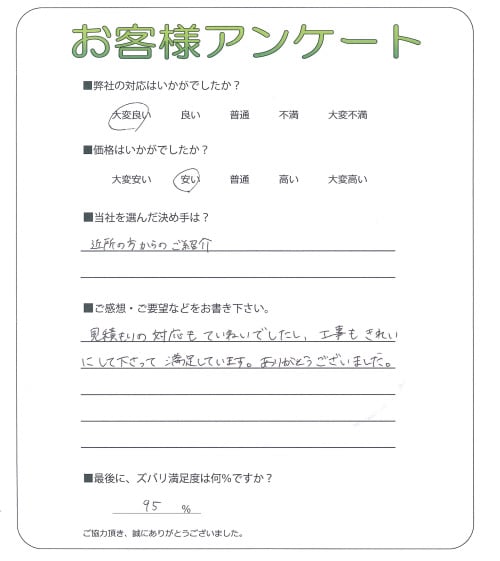 お客様アンケート
■弊社の対応はいかがでしたか？
大変良い 良い 普通 不満 大変不満
■価格はいかがでしたか？
大変安い 安い 普通 高い 大変高い
■当社を選んだ決め手は？
近所の方からのご紹介
■ご感想・ご要望などをお書き下さい。
見積もりの対応もていねいでしたし、工事もきれい
にして下さって満足しています。ありがとうございました。
■最後に、ズバリ満足度は何％ですか？
95 ％
ご協力頂き、誠にありがとうございました。